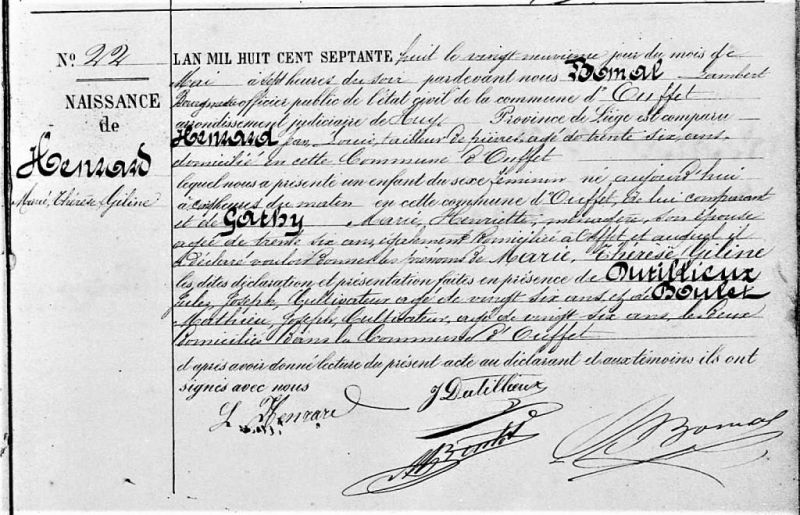 N° 22
NAISSANCE
de
Henrard
Marie, Thérèse Giline
LAN MIL HUIT CENT SEPTANTE huit le vingt neuvième jour du mois de
Mai à sept heures du soir pardevant nous Bomal Lambert
Bourgmestre officier public de l'état civil de la commune d'Ouffet
arrondissement judiciaire de Huy Province de Liège est comparu
Henrard Jean Louis, tailleur de pierres, agé de trente six ans
domicilié en cette Commune d'Ouffet
lequel nous a présenté un enfant du sexe féminin né aujourd'hui
à heures du matin en cette commune d'Ouffet, de lui comparant
et de Gathy Marie, Henriette, ménagère, son épouse
agée de trente six ans, également domiciliée à Ouffet et auquel il
a déclaré vouloir donner les prénoms de Marie, Thérèse, Giline
les dites déclaration et présentation faites en présence de Dutillieux
Jules, Joseph, Cultivateur agé de vingt six ans, et de Boulet
Mathieu, Joseph, Cultivateur, agé de vingt six ans, le deux
domiciliés dans la Commune d'Ouffet
et après avoir donné lecture du présent acte au déclarant et aux témoins ils ont
signés avec nous
L Henrard J Dutillieux
Boulet Bomal